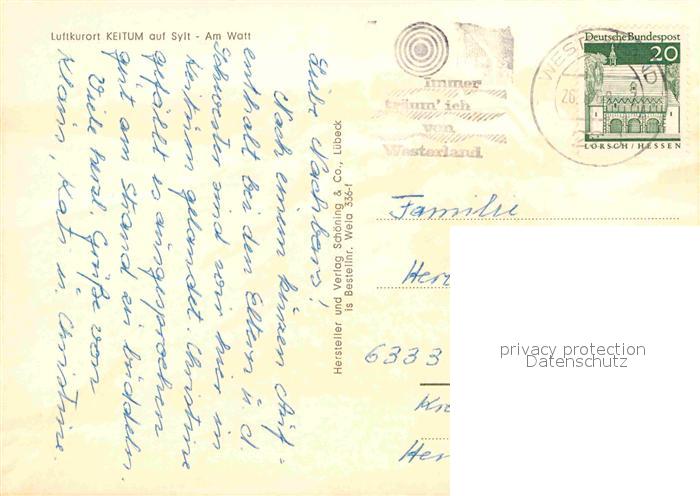 Luftkurort KEITUM auf Sylt - Am Watt
Liebe Nachbars!
Nach einem kurzen Auf-
enthalt bei den Eltern u. d.
Schwester sind wir hier in
Keitum gelandet. Christine
gefällt es ausgesprochen
gut am Strand zu buddeln.
Viele herzl. Grüße von
Klaus, Kat u. Christine.
Hersteller und Verlag Schöning & Co., Lübeck
is Bestellnr. Wela 336-f
Immer
träum' ich
von
Westerland
WES
26.
Deutsche Bundespost
20
LORSCH/HESSEN
Familie
Her
6333
Kr
Her
privacy protection
Datenschutz